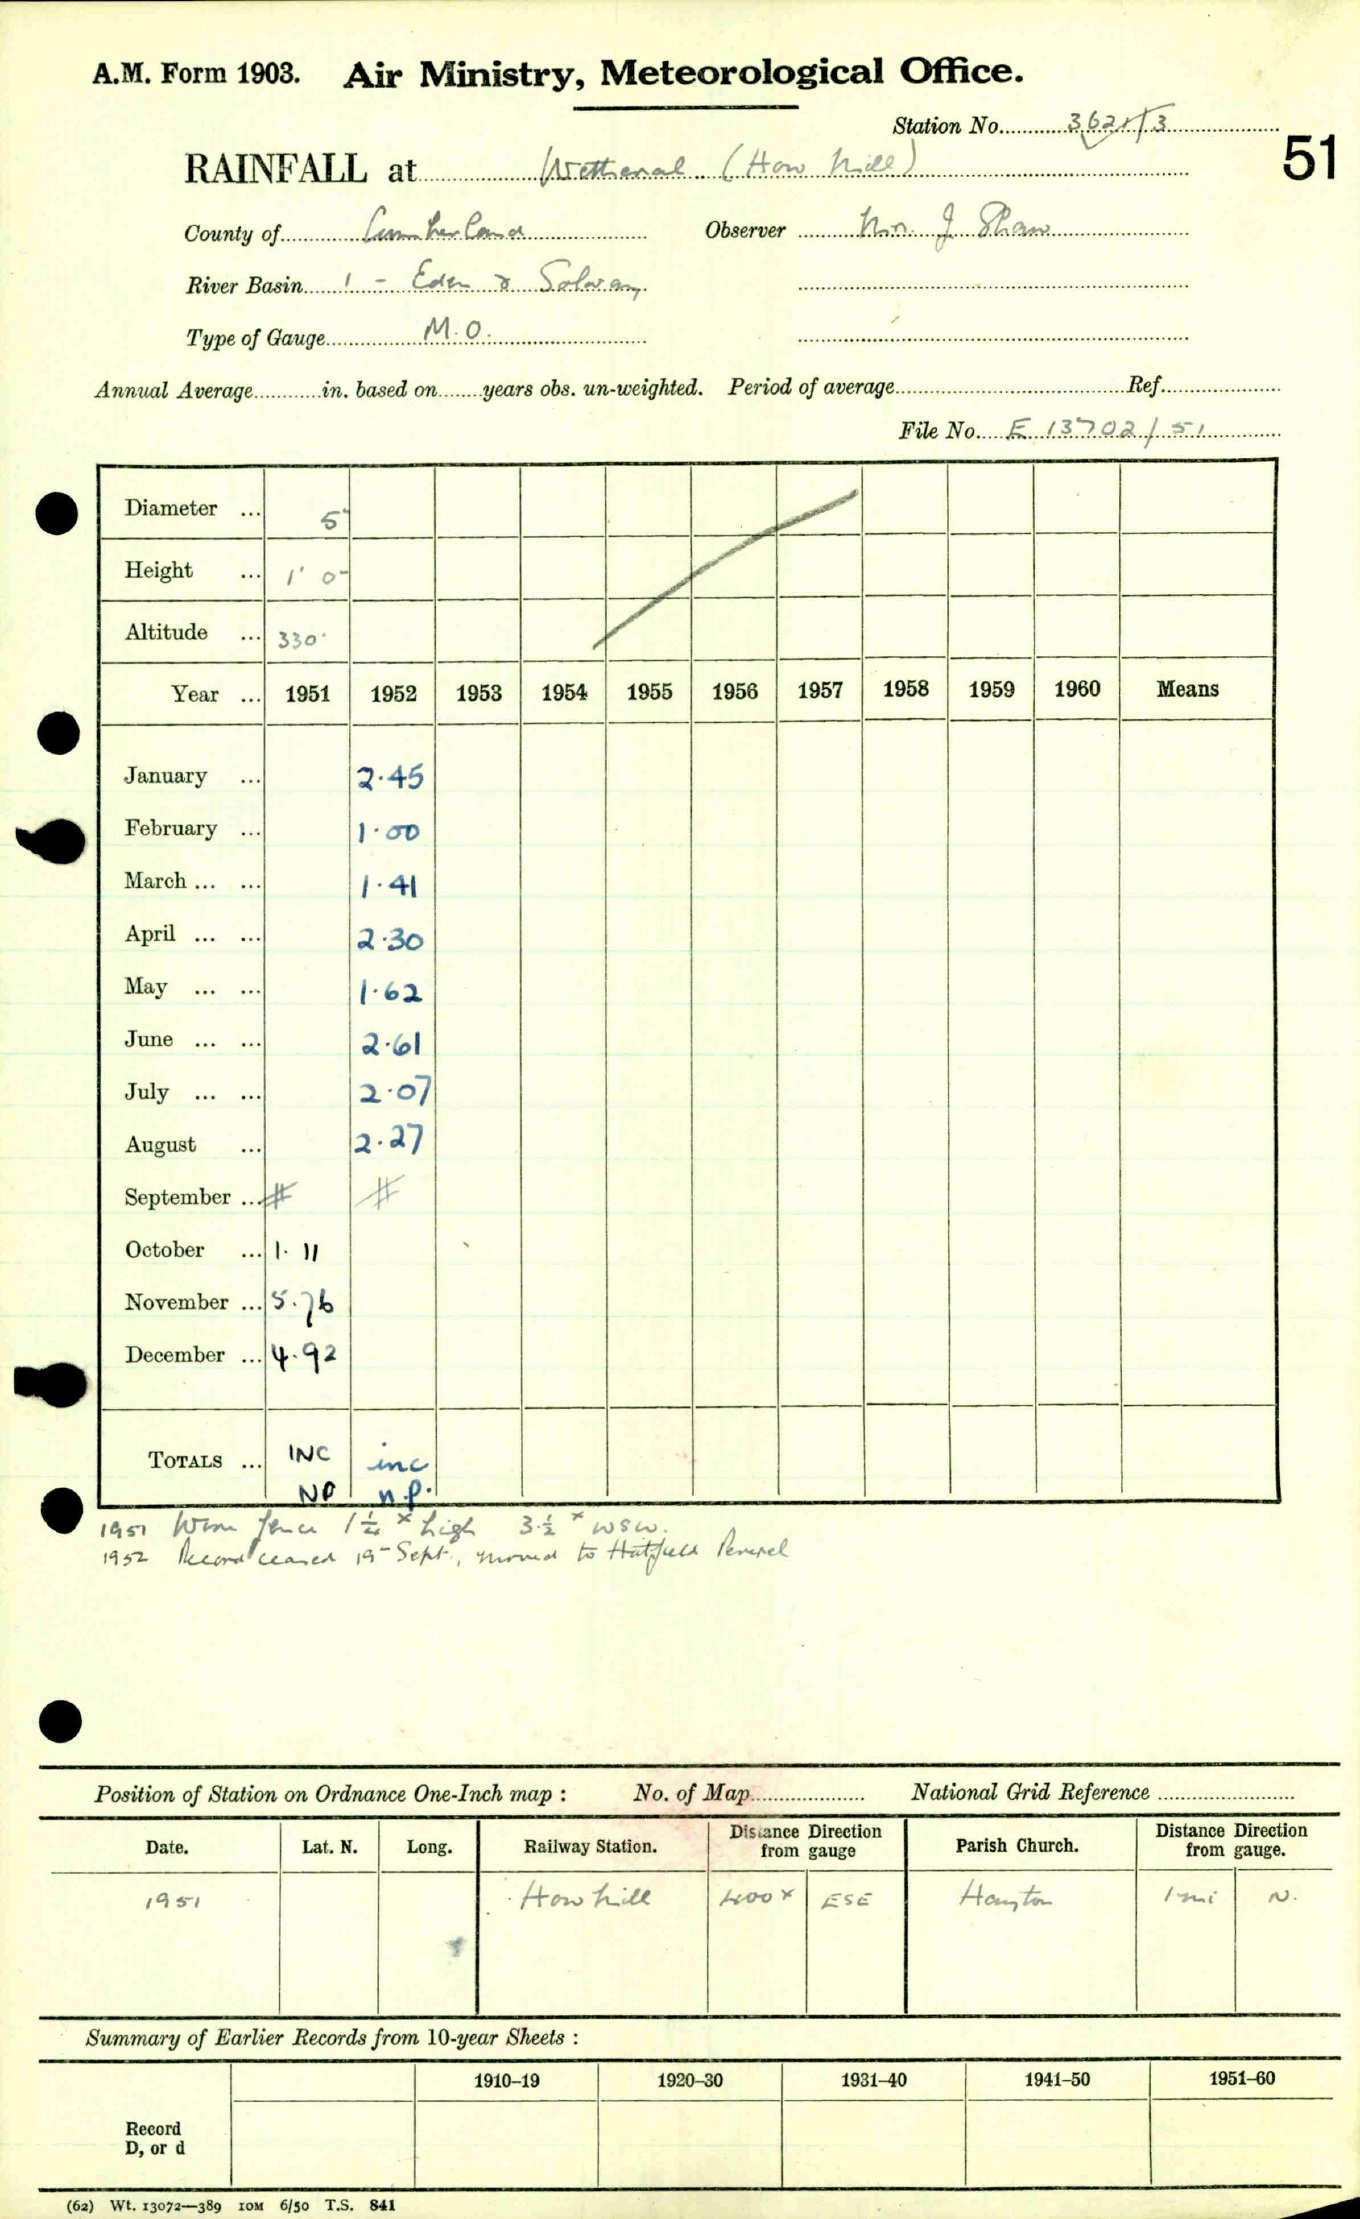 A.M. Form 1903. Air Ministry, Meteorological Office.
Station No. 3621/3
51
RAINFALL at Wetheral (How Mill)
County of Cumberland Observer Mr. J Shaw
River Basin 1 - Eden & Solway
Type of Gauge M.O.
Annual Average in. based on years obs. un-weighted. Period of average Ref.
File No. E 13702/51
Diameter ... 5"
Height ... 1' 0"
Altitude ... 330'
Year ... 1951 1952 1953 1954 1955 1956 1957 1958 1959 1960 Means
January ... 2.45
February ... 1.00
March ... ... 1.41
April ... ... 2.30
May ... ... 1.62
June ... ... 2.61
July ... ... 2.07
August ... 2.27
September ... # #
October ... 1.11
November ... 5.76
December ... 4.92
TOTALS ... INC inc
NP n.p.
1951 fence 1¼ x high 3½ x WSW.
1952 Record ceased 19 Sept., moved to Hatfield Peverel
Position of Station on Ordnance One-Inch map : No. of Map National Grid Reference
Date. Lat. N. Long. Railway Station. Distance Direction from gauge Parish Church. Distance Direction from gauge.
1951 How Mill 400x ESE Hayton 1 mi N.
Summary of Earlier Records from 10-year Sheets :
1910–19 1920–30 1931–40 1941–50 1951–60
Record
D, or d
(62) Wt. 13072—389 10M 6/50 T.S. 841